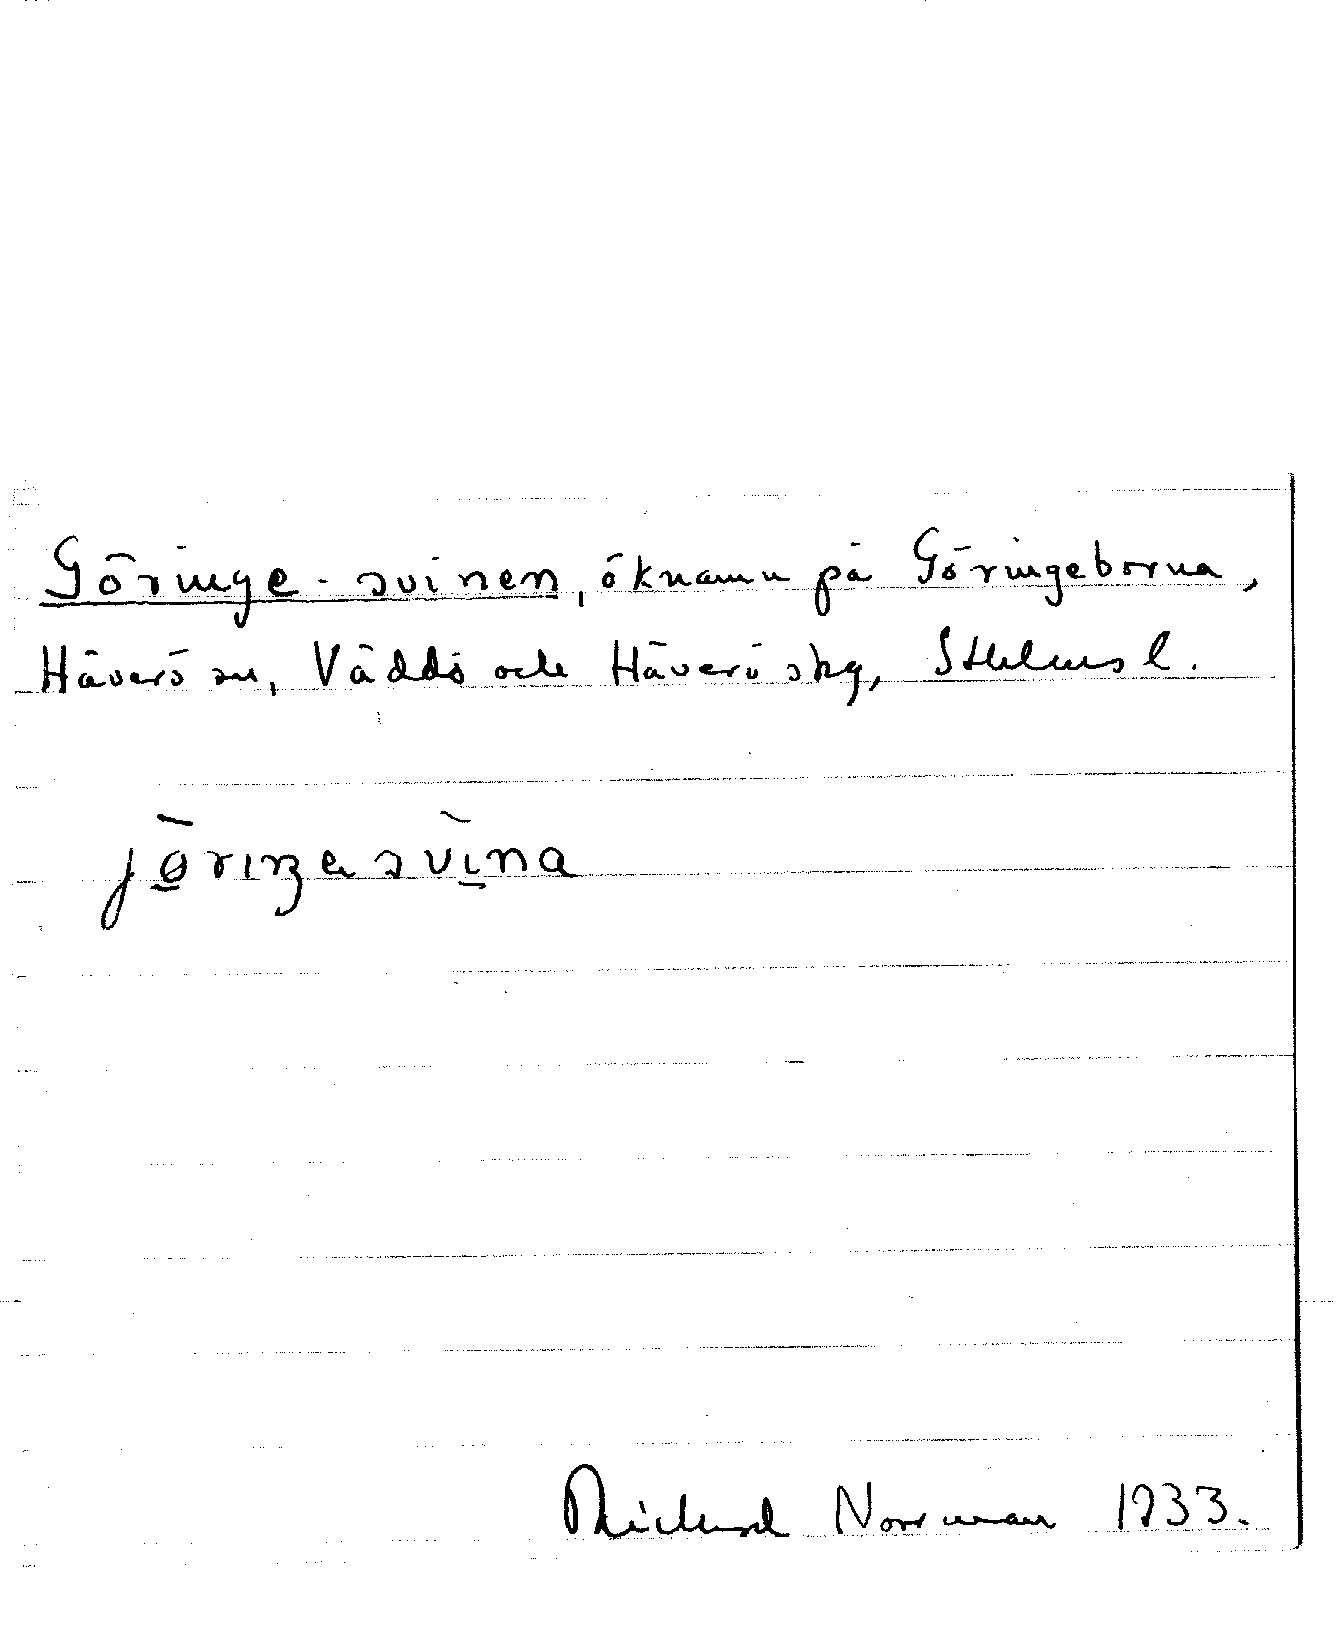 Göringe-svinen, öknamn på Göringeborna,
Häverö sn, Väddö och Häverö skg, Sthlms l.
jø̄riŋasvìna
Rickard Norrman 1933.